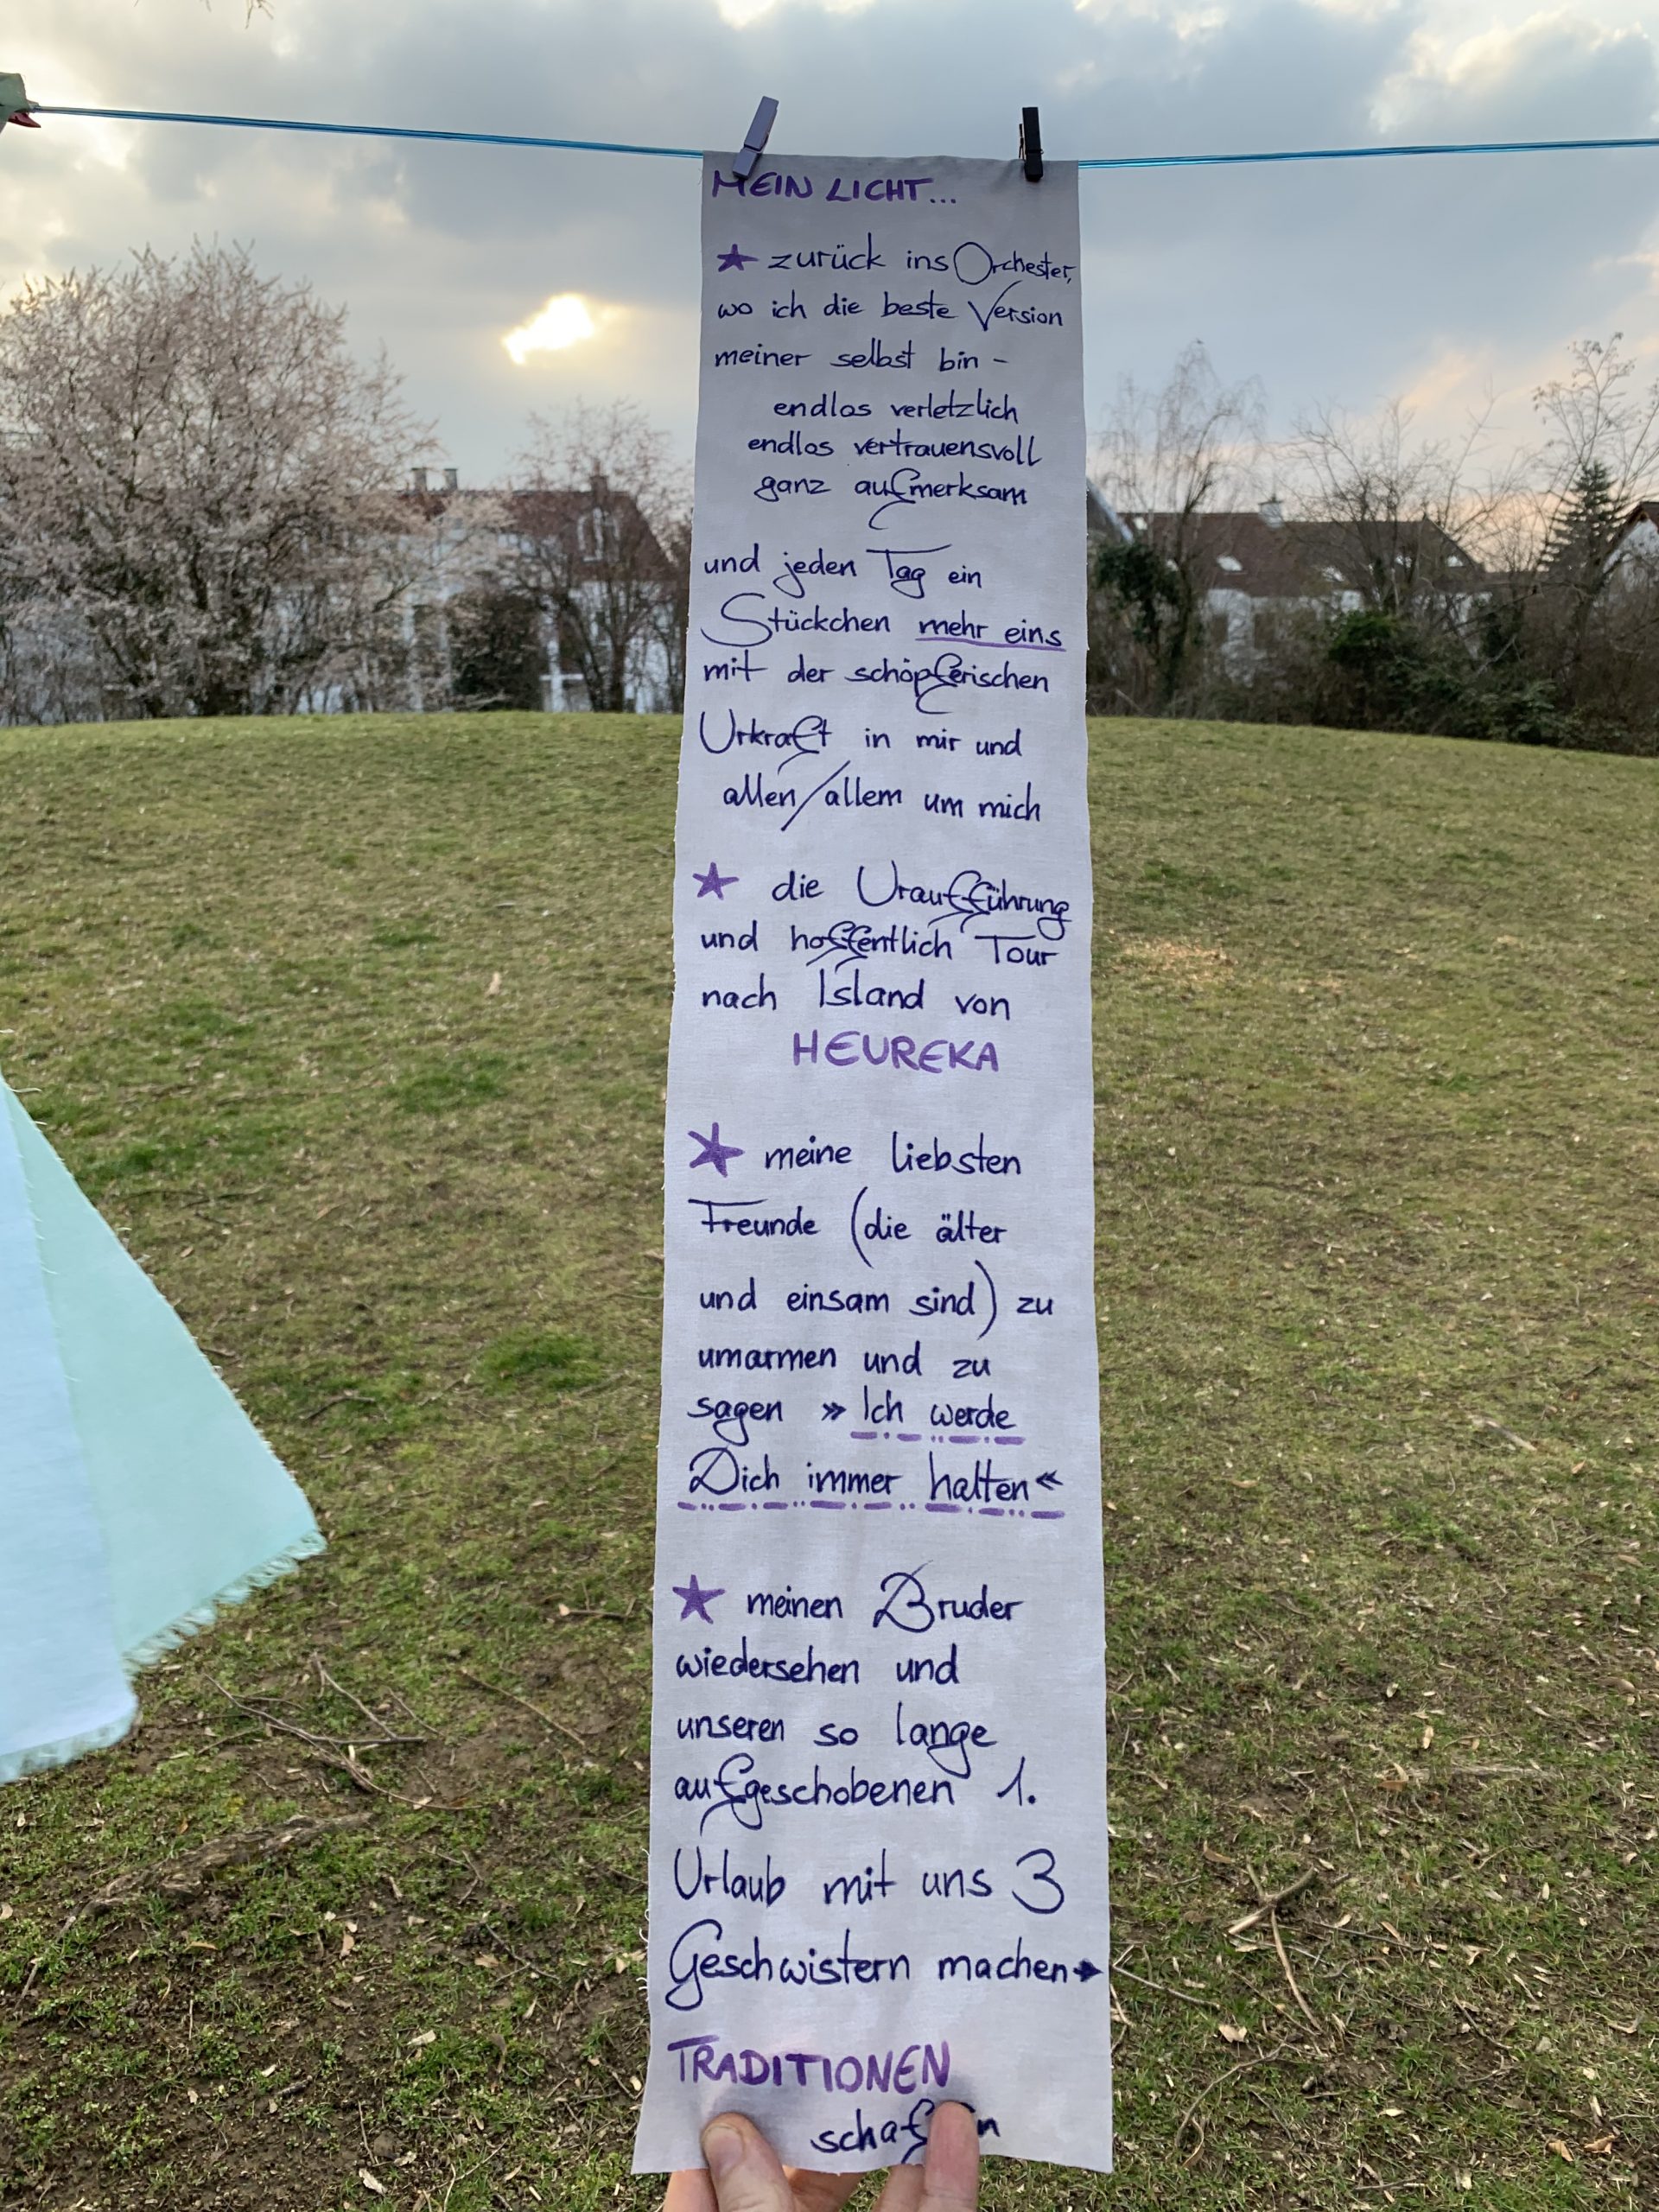 MEIN LICHT...
★ zurück ins Orchester,
wo ich die beste Version
meiner selbst bin -
endlos verletzlich
endlos vertrauensvoll
ganz aufmerksam
und jeden Tag ein
Stückchen mehr eins
mit der schöpferischen
Urkraft in mir und
allen/allem um mich
★ die Uraufführung
und hoffentlich Tour
nach Island von
HEUREKA
★ meine liebsten
Freunde (die älter
und einsam sind) zu
umarmen und zu
sagen »Ich werde
Dich immer halten«
★ meinen Bruder
wiedersehen und
unseren so lange
aufgeschobenen 1.
Urlaub mit uns 3
Geschwistern machen→
TRADITIONEN